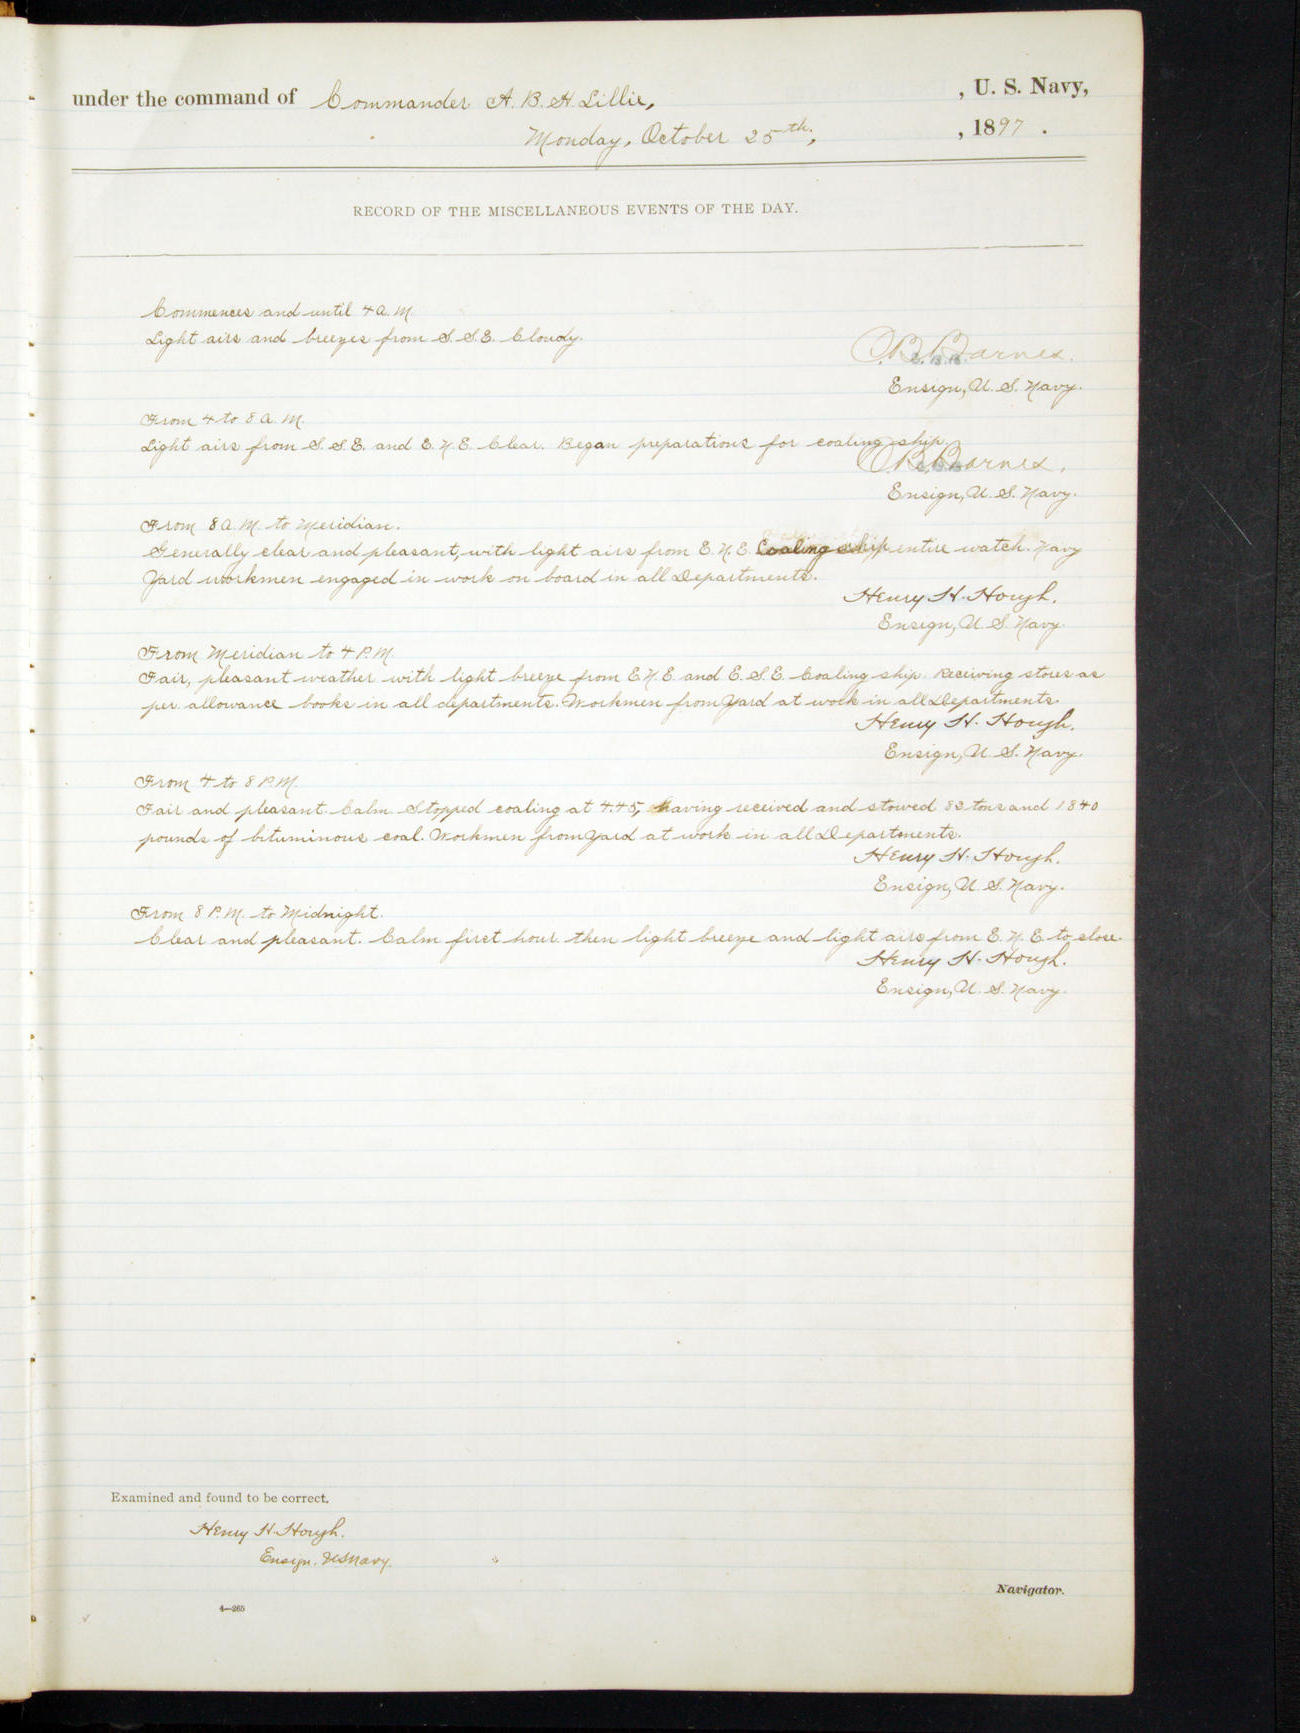 under the command of Commander A. B. H. Lillie, , U. S. Navy,
Monday, October 25th, , 1897.
RECORD OF THE MISCELLANEOUS EVENTS OF THE DAY.
Commences and until 4 A.M.
Light airs and breezes from S.S.E. Cloudy.
Barnes.
Ensign, U.S. Navy.
From 4 to 8 A.M.
Light airs from S.S.E. and E.N.E. Clear. Began preparations for coaling ship.
Barnes.
Ensign, U.S. Navy.
From 8 A.M. to Meridian.
Generally clear and pleasant, with light airs from E.N.E. Coaling ship entire watch. Navy
Yard workmen engaged in work on board in all Departments.
Henry H. Hough.
Ensign, U.S. Navy.
From Meridian to 4 P.M.
Fair, pleasant weather with light breeze from E.N.E. and E.S.E. Coaling ship. Receiving stores as
per allowance books in all departments. Workmen from Yard at work in all Departments.
Henry H. Hough.
Ensign, U.S. Navy.
From 4 to 8 P.M.
Fair and pleasant. Calm. Stopped coaling at 4.45, having received and stowed 82 tons and 1840
pounds of bituminous coal. Workmen from Yard at work in all Departments.
Henry H. Hough.
Ensign, U.S. Navy.
From 8 P.M. to Midnight.
Clear and pleasant. Calm first hour then light breeze and light airs from E.N.E. to close.
Henry H. Hough.
Ensign, U.S. Navy.
Examined and found to be correct.
Henry H. Hough.
Ensign. U.S. Navy.
Navigator.
4—265